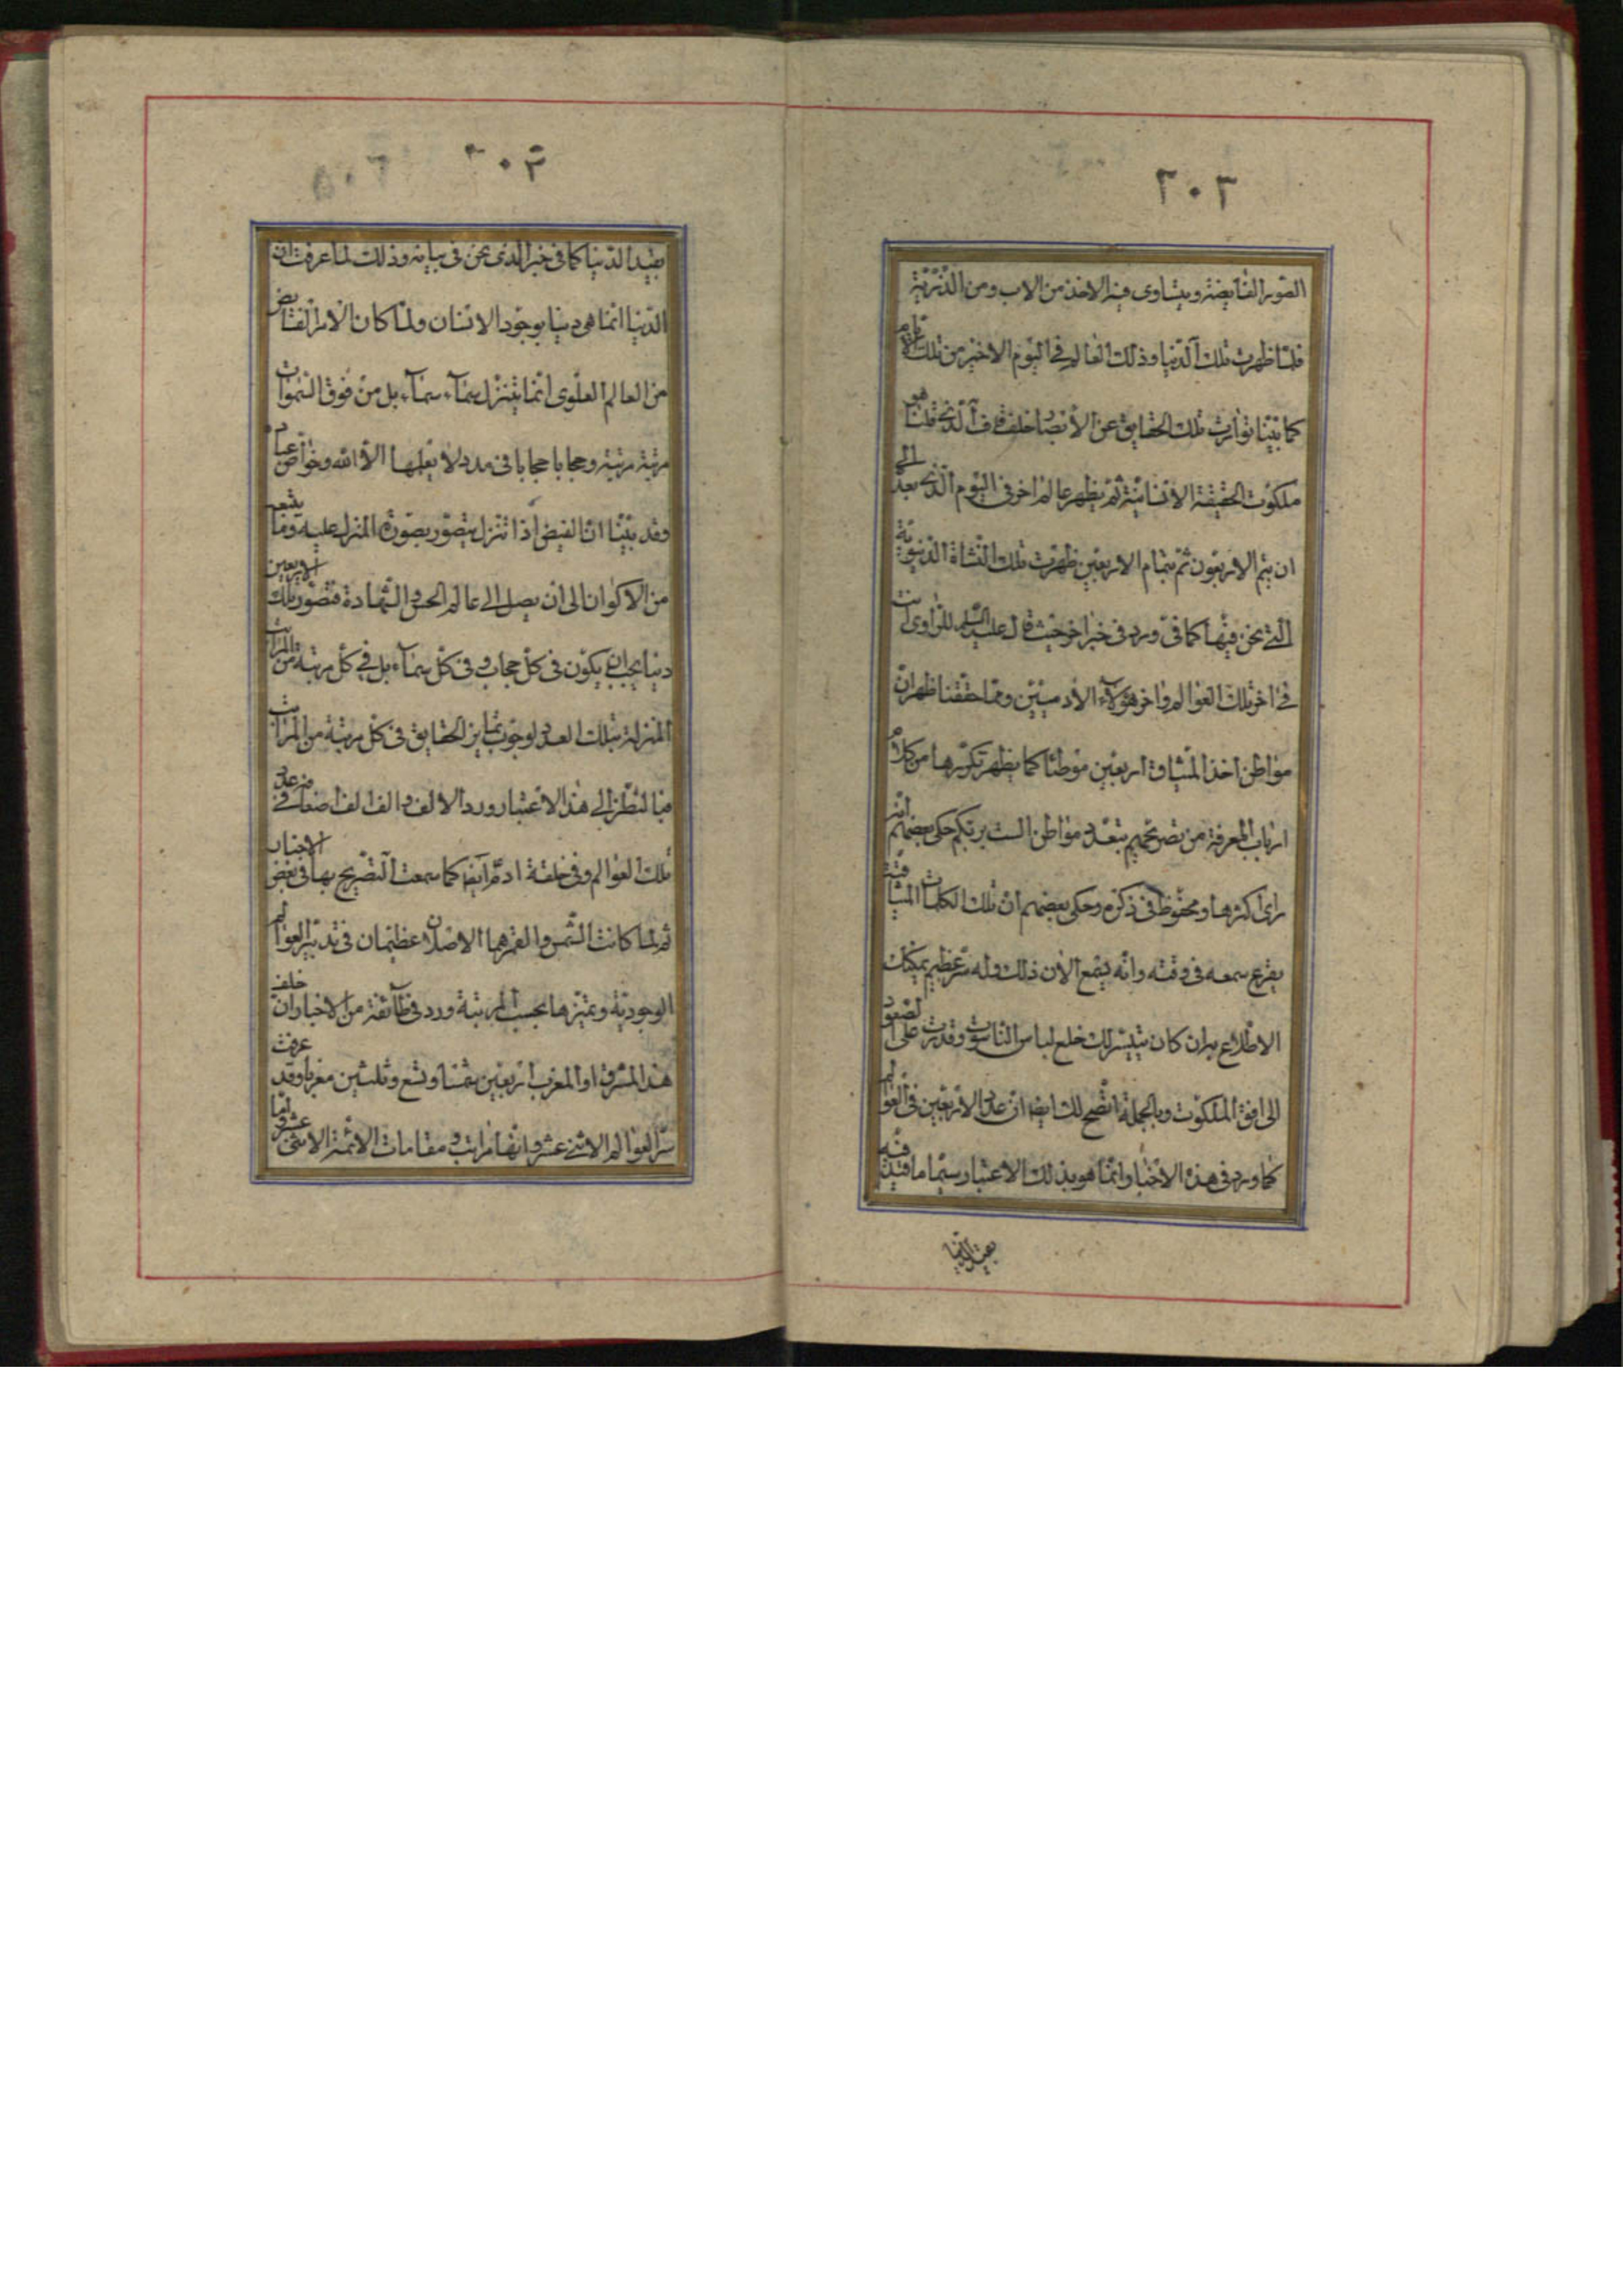 ٢٠٢
الصور الفايضة ويتساوى فيه الاخذ من الاب ومن الذرية
فلما ظهرت تلك الدنيا وذلك العالم في اليوم الاخير من تلك الايام
كما بيّنا توارت تلك الحقايق عن الأبصار خلف قاف الذي قلنا هو
ملكوت الحقيقة الانسانية ثم يظهر عالم اخر في اليوم الذي بعد الى
ان يتم الاربعون ثم بتمام الاربعين ظهرت تلك النشاة الدنيوية
التي نحن فيها كما في ورد في خبر اخر حيث قال عليه السلم للراوى انت
في اخر تلك العوالم واخر هؤلاء الآدميّين ومما حققنا ظهر ان
مواطن اخذ الميثاق اربعين موطنا كما يظهر تكرّرها من كلام
ارباب المعرفة من تصريحهم بتعدد مواطن الست بربكم حكى بعضهم انه
راى اكثرها ومحفوظ في ذكره وحكى بعضهم ان تلك الكلمات الميثاقية
يقرع سمعه في وقته وانه يسمع الآن ذلك وله سر عظيم يمكنك
الاطلاع به ان كان يتيسر لك خلع لباس الناسوت وقدرت على الصعود
الى افق الملكوت وبالجملة اتضح لك ايضا ان عدد الاربعين في العوالم
كما ورد في هذه الاخبار وانما هو بذلك الاعتبار سيما ما قيّد فيه
بقيد الدنيا
٢٠٣
بقيد الدنيا كما في خبر الذى نحن في بيانه وذلك لما عرفت ان
الدنيا انما هى دنيا بوجود الانسان ولما كان الامر الفايض
من العالم العلوى انما يتنزل سماء سماء بل من فوق السموات
مرتبة مرتبة وحجابا حجابا في مدد لا يعلمها الا الله وخواص عباده
وقد بيّنا ان الفيض اذا تنزل يتصور بصورة المنزل عليه وما يتبعه
من الاكوان الى ان يصل الى عالم الحس والشهادة فتصور تلك الاربعين
دنيا يجب ان يكون في كل حجاب وفي كل سماء بل في كل مرتبة من المراتب
المنزلة بتلك العدد لوجوب تمايز الحقايق في كل مرتبة من المراتب
فبالنظر الى هذا الاعتبار ورد الالف والف الف اضعاف في عدد
تلك العوالم وفي خلقة ادم ايضا كما سمعت التصريح بها في بعض الاخبار
ثم لما كانت الشمس والقمر هما الاصلان عظيمان في تدبير العوالم
الوجودية وتميزها بحسب المرتبة ورد في طائفة من الاخبار ان خلف
هذا المشرق او المغرب اربعين شمسا وتسع وثلثين مغربا وقد عرفت
سر العوالم الاثنى عشر وانها مراتب ومقامات الائمة الاثنى عشر واما